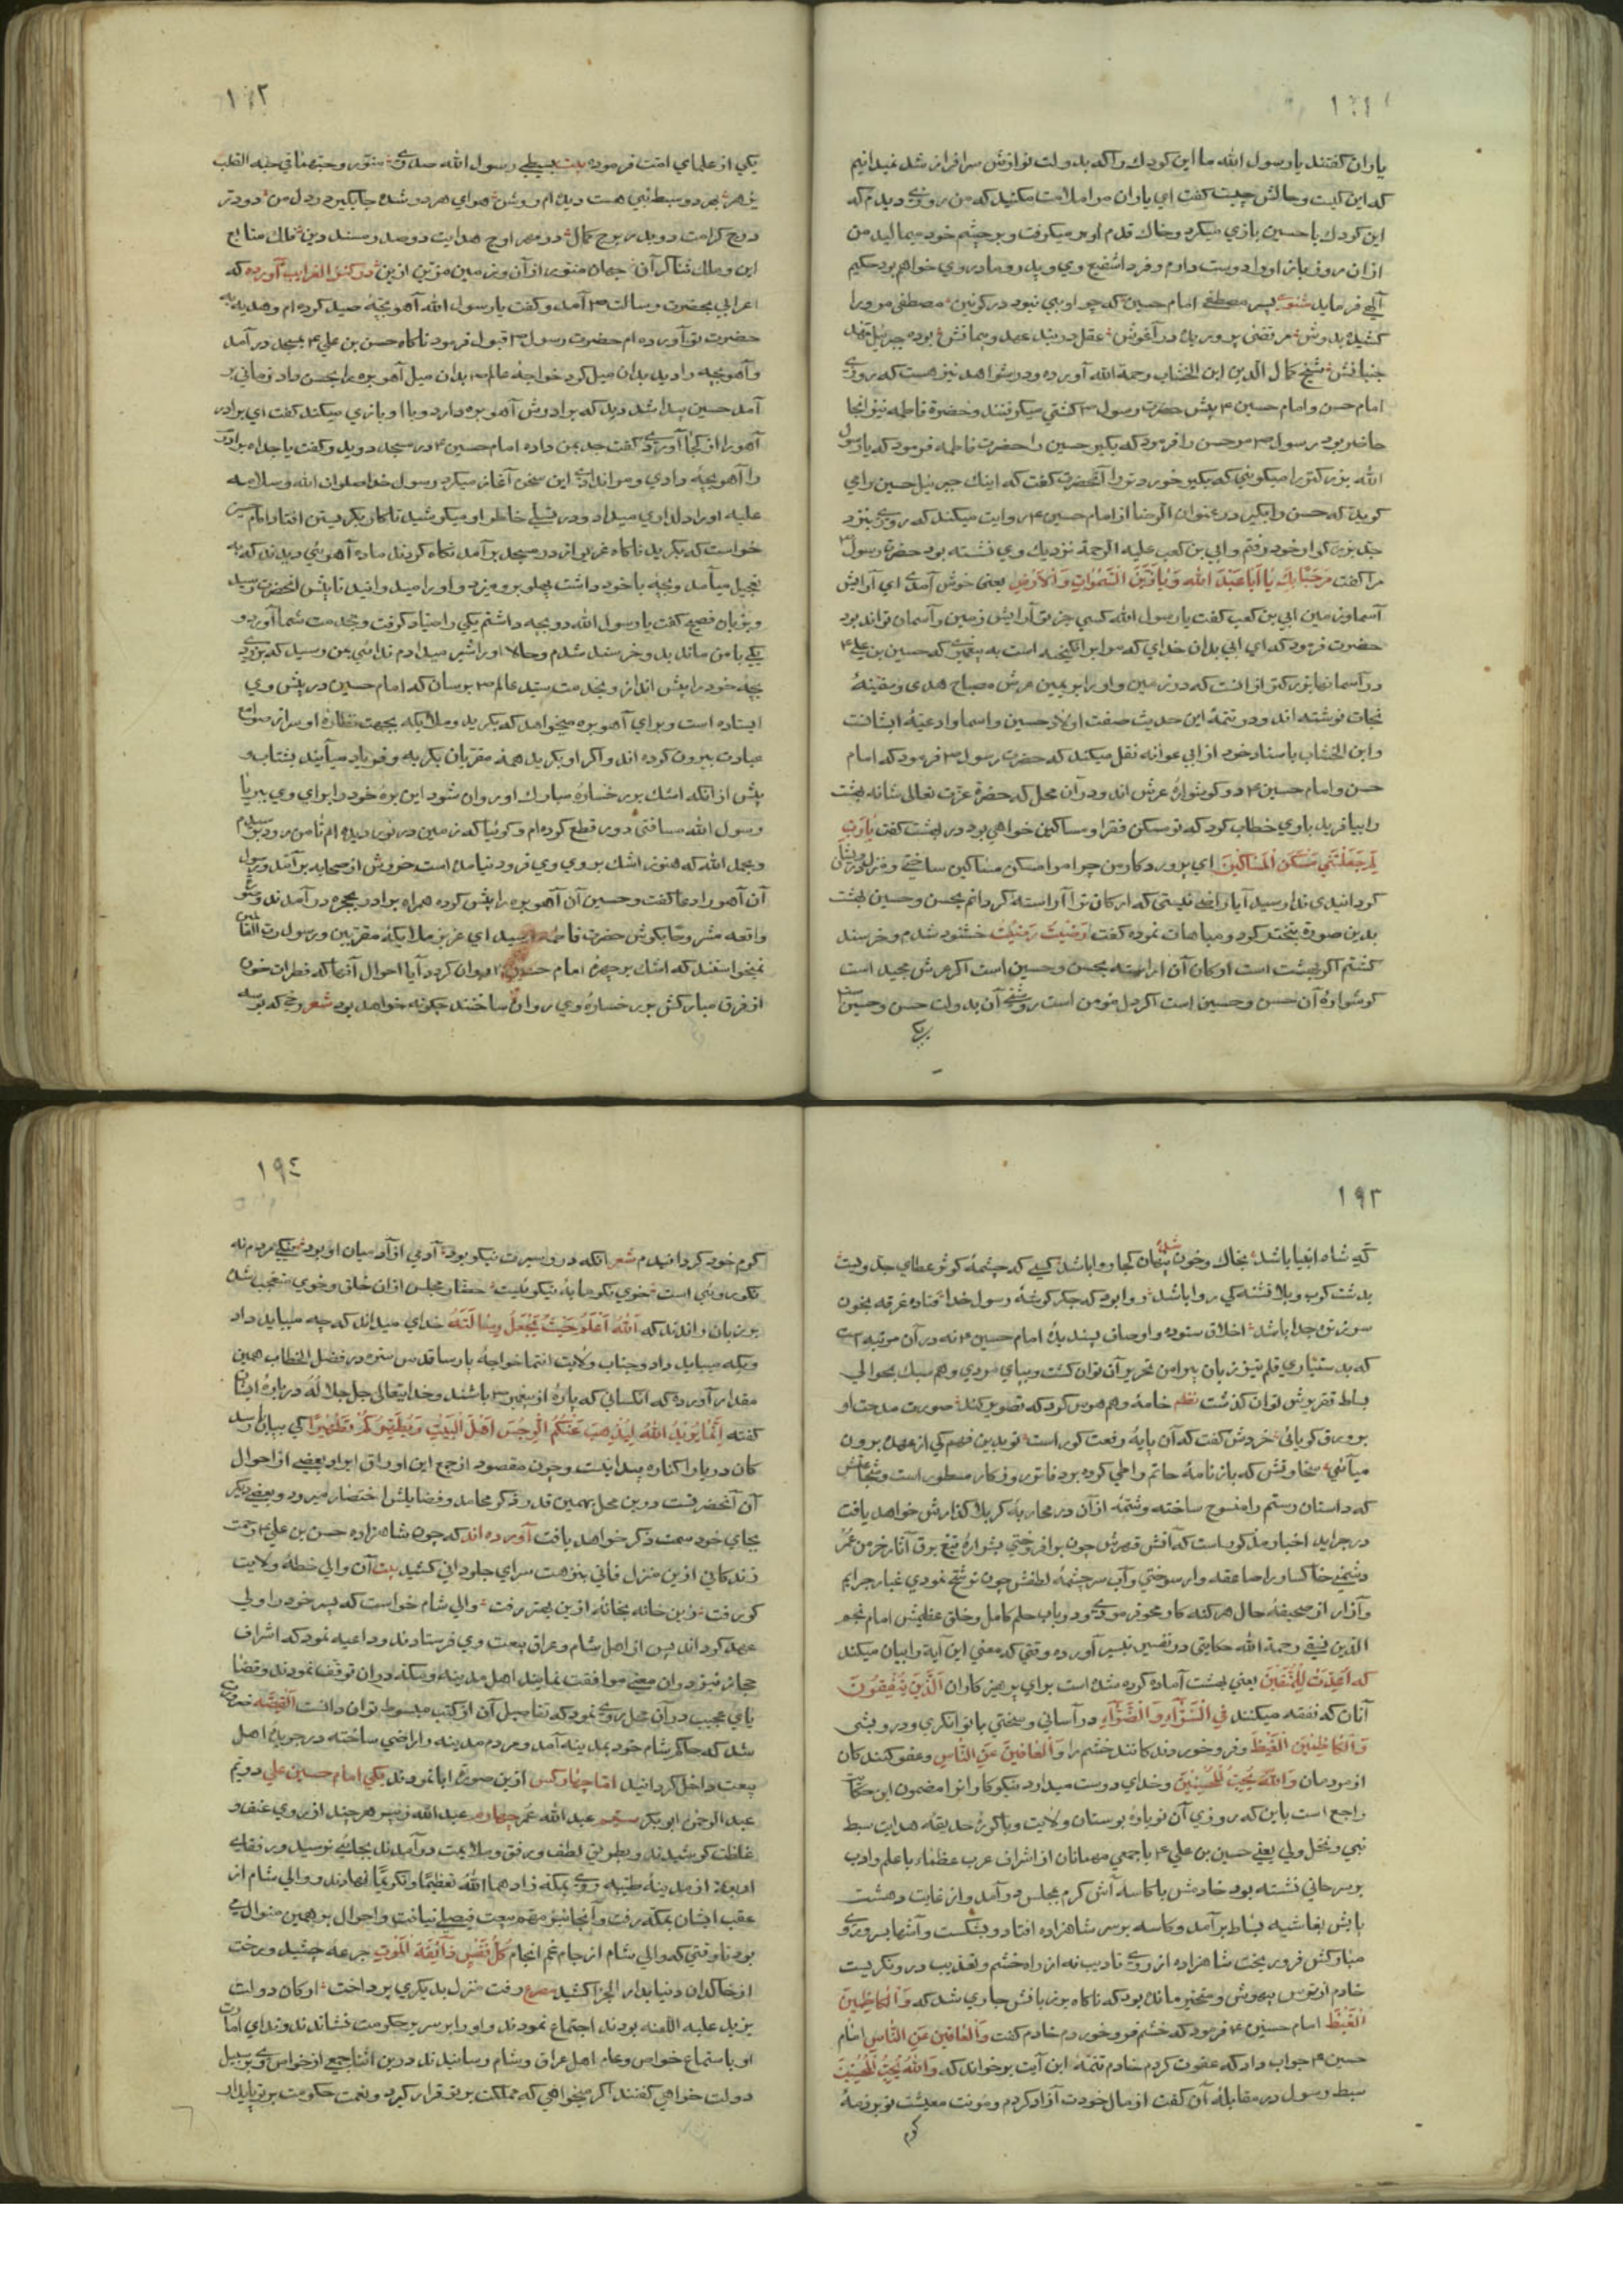 ١٩١
یاران گفتند یا رسول الله ما این کودك را که بدولت نوازش سرافراز شد نمیدانیم
که این کیست و حالش چیست گفت ای یاران مرا ملامت مکنید که من روزی دیدم که
این کودك با حسین بازی میکرد و خاك قدم او بر میگرفت و بر چشم خود میمالید من
ازان روز باز او را دوست دارم و فردا شفیع وی و پدر و مادر وی خواهم بود حکیم
فرماید پسر مصطفی امام حسین که چو او نبود در کونین مصطفی مر ورا
کشیده بدوش مرتضی پروریده در آغوش عقل در بند عهد و پیمانش بوده جبرئیل
شیخ کمال الدین ابن الخشاب رحمة الله آورده و در شواهد نیز هست که روزی
امام حسن و امام حسین ۴ پیش حضرت رسول ص کشتی میگرفتند و حضرة فاطمه نیز آنجا
حاضر بود رسول ص مر حسن را فرمود که بگیر حسین را حضرت فاطمه فرمود که یا رسول
الله بزرگتر را میگوئی که بگیر خوردتر را آنحضرت گفت که اینك جبرئیل حسین را می
گوید که حسن را بگیر در عنوان الرضا از امام حسین ۴ روایت میکند که روزی بنزد
جد بزرگوار خود رفتم و ابی بن کعب علیه الرحمة نزدیك وی نشسته بود حضرت رسول ص
مرا گفت مَرْحَبًا بِكَ يَا أَبَا عَبْدَ اللهِ وَ يَا زَيْنَ السَّمٰوَاتِ وَالْأَرْضِ یعنی خوش آمدی ای آرایش
آسمان و زمین ابی بن کعب گفت یا رسول الله کسی جز تو آرایش زمین و آسمان تواند بود
حضرت فرمود که ای ابی بدان خدای که مرا برانگیخته است به پیغمبری که حسین بن علی ۴
در آسمانها بزرگتر از آنست که در زمین و او را بر یمین عرش مصباح هدی و سفینهٔ
نجات نوشته اند و در تتمهٔ این حدیث صفت اولاد حسین و اسما و ادعیهٔ ایشانست
و ابن الخشاب باسناد خود از ابی عوانه نقل میکند که حضرت رسول ص فرمود که امام
حسن و امام حسین ۴ دو گوشوارهٔ عرش اند و در آن محل که حضرة عزت تعالی شانه بهشت
را بیافرید با وی خطاب کرد که تو مسکن فقرا و مساکین خواهی بود در بهشت گفت يَا رَبِّ
لِمَ جَعَلْتَنِي مَسْكَنَ الْمَسَاكِيْنَ ای پروردگار من چرا مرا مسکن مساکین ساختی
گردانیدی ندا رسید آیا راضی نیستی که ارکان ترا آراسته گردانم بحسن و حسین بهشت
بدین صورة تبختر کرد و مباهات نموده گفت رَضِيْتُ رَضِيْتُ خشنود شدم و خرسند
گشتم اگر بهشت است ارکان آن آراسته بحسن و حسین است اگر عرش مجید است
گوشوارهٔ آن حسن و حسین است اگر دل مؤمن است روشنی آن بدولت حسن و حسین است
یکی
١٩٢
یکی از علمای امت فرموده بیت بسبطی رسول الله صدری منور و حبهما فی حبة القلب
مهر دو سبط نبی هست دیده‌ام روشن هوای هر دو شده جایگیر در دل من دو در
درج کرامت دو بدر برج کمال دو مهر اوج هدایت دو صدر مسند دین فلك متابع
این و ملك ثناگر آن جهان منور از آن و زمین مزین ازین در کنز الغرایب آورده که
اعرابی بحضرت رسالت ص آمد و گفت یا رسول الله آهو بچه صید کرده ام و هدیه به
حضرت تو آورده ام حضرت رسول ص قبول فرمود ناگاه حسن بن علی ۴ بمسجد در آمد
و آهو بچه را دید بدان میل کرد خواجهٔ عالم ص بدان میل آهو بره را بحسن داد زمانی بر
آمد حسین پیدا شد دید که برادرش آهو بره دارد و با او بازی میکند گفت ای برادر
آهو را از کجا آوردی گفت جدم بمن داده امام حسین ۴ در مسجد دوید و گفت یا جداه برادرم
را آهو بچه دادی و مرا ندادی این سخن آغاز میکرد و رسول خدا صلوات الله و سلامه
علیه او را دلداری میداد و در تسلی خاطر او میکوشید تا کار بگریستن افتاد امام حسین
خواست که بگرید ناگاه غریو از در مسجد برآمد نگاه کردند ماده آهوئی دیدند که به
تعجیل میآمد و بچه با خود داشت پهلو برو میزد و او را میدوانید تا پیش آنحضرت رسید
و بزبان فصیح گفت یا رسول الله دو بچه داشتم یکی را صیاد گرفت و بخدمت شما آورد و
یکی با من مانده بد و خرسند شدم و حالا او را شیر میدادم ندائی بمن رسید که زود
بچه خود را پیش انداز و بخدمت سید عالم ص برسان که امام حسین در پیش وی
ایستاده است و برای آهو بره میخواهد که بگرید و ملائکه بجهت نظاره او سر از صوامع
عبادت بیرون کرده اند و اگر او بگرید همه مقربان بگریه و فریاد میآیند بشتاب و
پیش از آنکه اشك بر رخسارهٔ مبارك او روان شود این بره خود را برای وی ببر یا
رسول الله مسافتی دور قطع کرده ام و گوئیا که زمین در نوردیده ام تا من زود رسیدم
و بحمد الله که هنوز اشك بر روی وی فرود نیامده است خروش از صحابه برآمد و رسول
آن آهو را دعا گفت و حسین آن آهو بره را پیش کرده همراه برادر بحجره در آمدند و
واقعه مشروحًا بگوش حضرت فاطمه رسید ای عزیز ملائکهٔ مقربین و رسول رب العالمین
نمیخواستند که اشك بر چهرهٔ امام حسین روان گردد آیا احوال آنها که قطرات خون
از فرق مبارکش بر رخسارهٔ وی روان ساختند چگونه خواهد بود شعر رخی که بوسه
١٩٣
گه شاه انبیا باشد بخاك و خون شده پنهان کجا روا باشد کسی که چشمهٔ کوثر عطای جد ویست
بدشت کرب و بلا تشنه کی روا باشد روا بود که جگر گوشهٔ رسول خدا فتاده غرقه بخون
سر ز تن جدا باشد اخلاق ستوده و اوصاف پسندیدهٔ امام حسین ۴ نه در آن مرتبه است
که بدستیاری قلم تیز زبان پیرامن تحریر آن توان گشت و بپای مردی وهم سبك بحوالی
بساط تقریرش توان گذشت نظم خامهٔ وهم هوس کرد که تصویر کند صورت مدحت او
بر ورق گویائی خردش گفت که آن پایهٔ رفعت کو راست تو بدین فهم کی از عهده برون
میآئی سخاوتش که بازنامهٔ حاتم را طی کرده بر دفاتر روزگار مسطور است و شجاعتش
که داستان رستم را منسوخ ساخته و شمهٔ از آن در محاربهٔ کربلا گذارش خواهد یافت
در جراید اخبار مذکور است که آتش قهرش چون برافروختی بشرارهٔ تیغ برق آثار خرمن عمر
دشمن خاکسار را صاعقه وار سوختی و آب سرچشمهٔ لطفش چون ترشح نمودی غبار جرایم
و آزار از صحیفهٔ حال هر گنه کار محو فرمودی و در باب حلم کامل و خلق عظیمش امام نجم
الدین نسفی رحمة الله حکایتی در تفسیر تیسیر آورده وقتی که معنی این آیة را بیان میکند
که أُعِدَّتْ لِلْمُتَّقِيْنَ یعنی بهشت آماده کرده شده است برای پرهیزکاران اَلَّذِيْنَ يُنْفِقُوْنَ
آنان که نفقه میکنند فِي السَّرَّآءِ وَالضَّرَّآءِ در آسانی و سختی یا توانگری و درویشی
وَالْكَاظِمِيْنَ الْغَيْظَ و فرو خورندگانند خشم را وَالْعَافِيْنَ عَنِ النَّاسِ و عفو کنندگان
از مردمان وَاللهُ يُحِبُّ الْمُحْسِنِيْنَ و خدای دوست میدارد نیکوکاران را مضمون این حکایت
راجع است باین که روزی آن نو باوهٔ بوستان ولایت و باکورهٔ حدیقهٔ هدایت سبط
نبی و نجل ولی یعنی حسین بن علی ۴ با جمعی مهمانان از اشراف عرب عظماء با علم و ادب
بر سر خانی نشسته بود خادمش با کاسهٔ آش گرم بمجلس در آمد و از غایت دهشت
پایش بحاشیه بساط برآمد و کاسه بر سر شاهزاده افتاد و بشکست و آشها بسر و روی
مبارکش فرو ریخت شاهزاده از روی تادیب نه از راه خشم و تعذیب درو نگریست
خادم از ترس بیهوش و متحیر مانده بود که ناگاه بر زبانش جاری شد که وَالْكَاظِمِيْنَ
الْغَيْظَ امام حسین ۴ فرمود که خشم فرو خوردم خادم گفت وَالْعَافِيْنَ عَنِ النَّاسِ امام
حسین ۴ جواب داد که عفوت کردم خادم تتمهٔ این آیت برخواند که وَاللهُ يُحِبُّ الْمُحْسِنِيْنَ
سبط رسول در مقابلهٔ آن گفت از مال خودت آزاد کردم و مؤنت معیشت تو بر ذمهٔ
کرم
١٩٤
کرم خود گردانیدم شعر آنکه درو سیرت نیکو بود آدمی از آدمیان او بود نیکی مردم نه
نکو روئی است خوی نکو مایهٔ نیکوئیست حضار مجلس ازان خلق و خوی متعجب شده
بر زبان راندند که اَللهُ أَعْلَمُ حَيْثُ يَجْعَلُ رِسَالَتَهُ خدای میداند که چه میباید داد
و بکه میباید داد و جناب ولایت انتما خواجه پارسا قدس سره در فصل الخطاب همین
مقدار آورده که آنکسانی که پارهٔ از پیغمبر ص باشند و خدایتعالی جل جلاله دربارهٔ ایشان
گفته إِنَّمَا يُرِيْدُ اللهُ لِيُذْهِبَ عَنْكُمُ الرِّجْسَ أَهْلَ الْبَيْتِ وَيُطَهِّرَكُمْ تَطْهِيْرًا کی بپایان رسد
کان دریا را کناره پیدا نیست و چون مقصود از جمع این اوراق ایراد بعضی از احوال
آن آنحضرتست درین محل بهمین قدر از ذکر محامد و فضایلش اختصار میرود و بعضی دیگر
بجای خود سمت ذکر خواهد یافت آورده اند که چون شاهزاده حسن بن علی ۴ رخت
زندگانی ازین منزل فانی بنزهت سرای جاودانی کشید بیت آن والی خطهٔ ولایت
کو رفت زین خانه بخانهٔ ازین بهتر رفت والی شام خواست که پسر خود را ولی
عهد گرداند پس از اهل شام و عراق بیعت وی فرستادند و داعیه نمود که اشراف
حجاز نیز در ان معنی موافقت نمایند اهل مدینه و مکه در ان توقف نمودند و قضا
یای عجیب در آن محل روی نمود که تفاصیل آن از کتب مبسوط توان دانست اَلْقِصَّه
شد که حاکم شام خود بمدینه آمد و مردم مدینه را راضی ساخته در جریدهٔ اهل
بیعت داخل گردانید اما چهار کس ازین صورة ابا نمودند یکی امام حسین علی دویم
عبد الرحمٰن ابو بکر سیم عبد الله عمر چهارم عبد الله زبیر هر چند از روی عنف و
غلظت کوشیدند و بطریق لطف و رفق و ملایمت در آمدند بجائی نرسید و رفقای
اربعه از مدینهٔ طیبه روی بمکه زادهما اللهُ تعظیمًا و تکریمًا نهادند و والی شام از
عقب ایشان بمکه رفت و آنجا نیز مهم بیعت فیصلی نیافت و احوال بر همین منوال می
بود تا وقتی که والی شام از جام غم انجام كُلُّ نَفْسٍ ذَآئِقَةُ الْمَوْتِ جرعه چشید و رخت
از خاکدان دنیا بدار الجزا کشید مصرع رفت منزل بدیگری پرداخت ارکان دولت
یزید علیه اللعنه بودند اجتماع نمودند و او را بر سریر حکومت نشاندند و ندای امارت
او باستماع خواص و عام اهل عراق و شام رسانیدند درین اثنا جمعی از خواص وی بر سبیل
دولت خواهی گفتند اگر میخواهی که مملکت بر تو قرار گیرد و نعمت حکومت بر تو پایدار